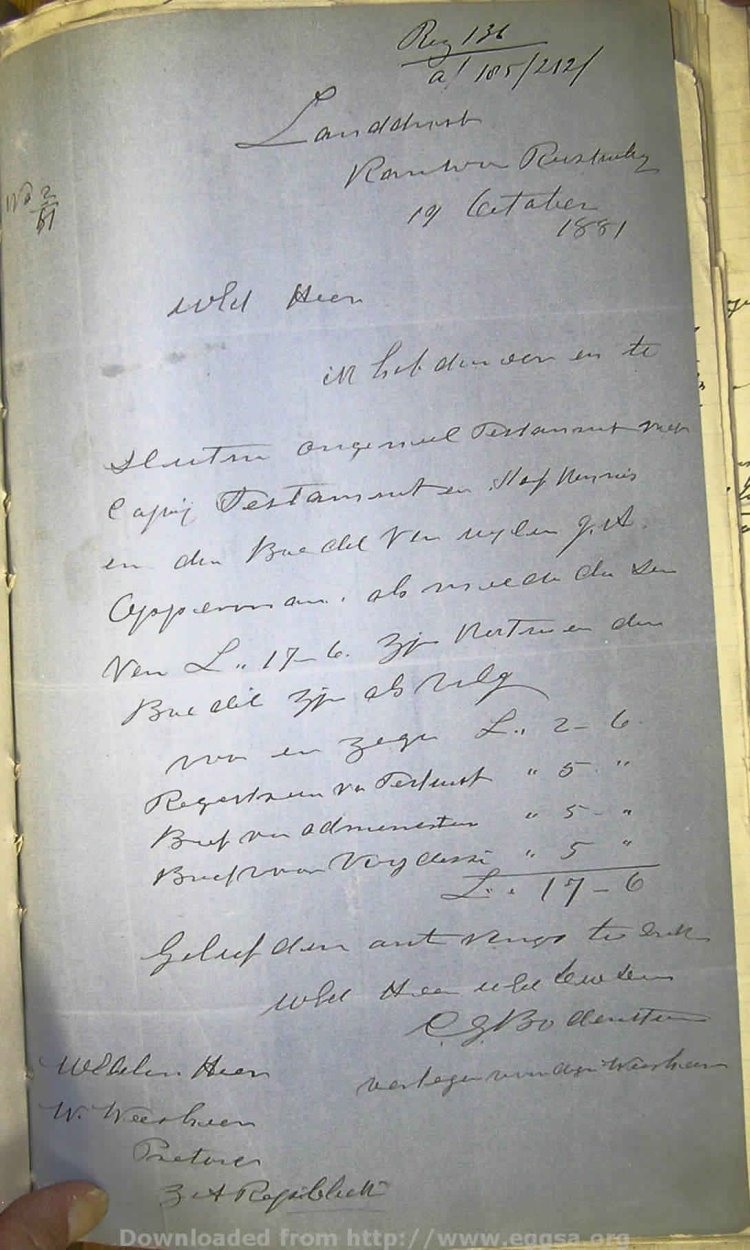 Reg 136
a/ 185/212/
Landdrost
Kantoor Rustenbg
No 2/81
19 October
1881
WEd Heer
ik heb den eer en te
sluiten orgeneel Testament met
Capij Testament en
en den Boedel van wylen J. A.
Opperman. als meede de Som
Van L.. 17-6. Zijn Kosten en den
Boedel Zijn als volg
voor en Zegn L.. 2-6
Regestreeren van Testment " 5. "
Brief van admenesten " 5 - "
Brief van " 5 "
L.. 17-6
Gelief den ontvangs te
WEd Heer WEd
C G Bodenstein
WEdelen Heer
W. Weesheer
Pretoria
Z A Repiblick
Downloaded from http://www.eggsa.org